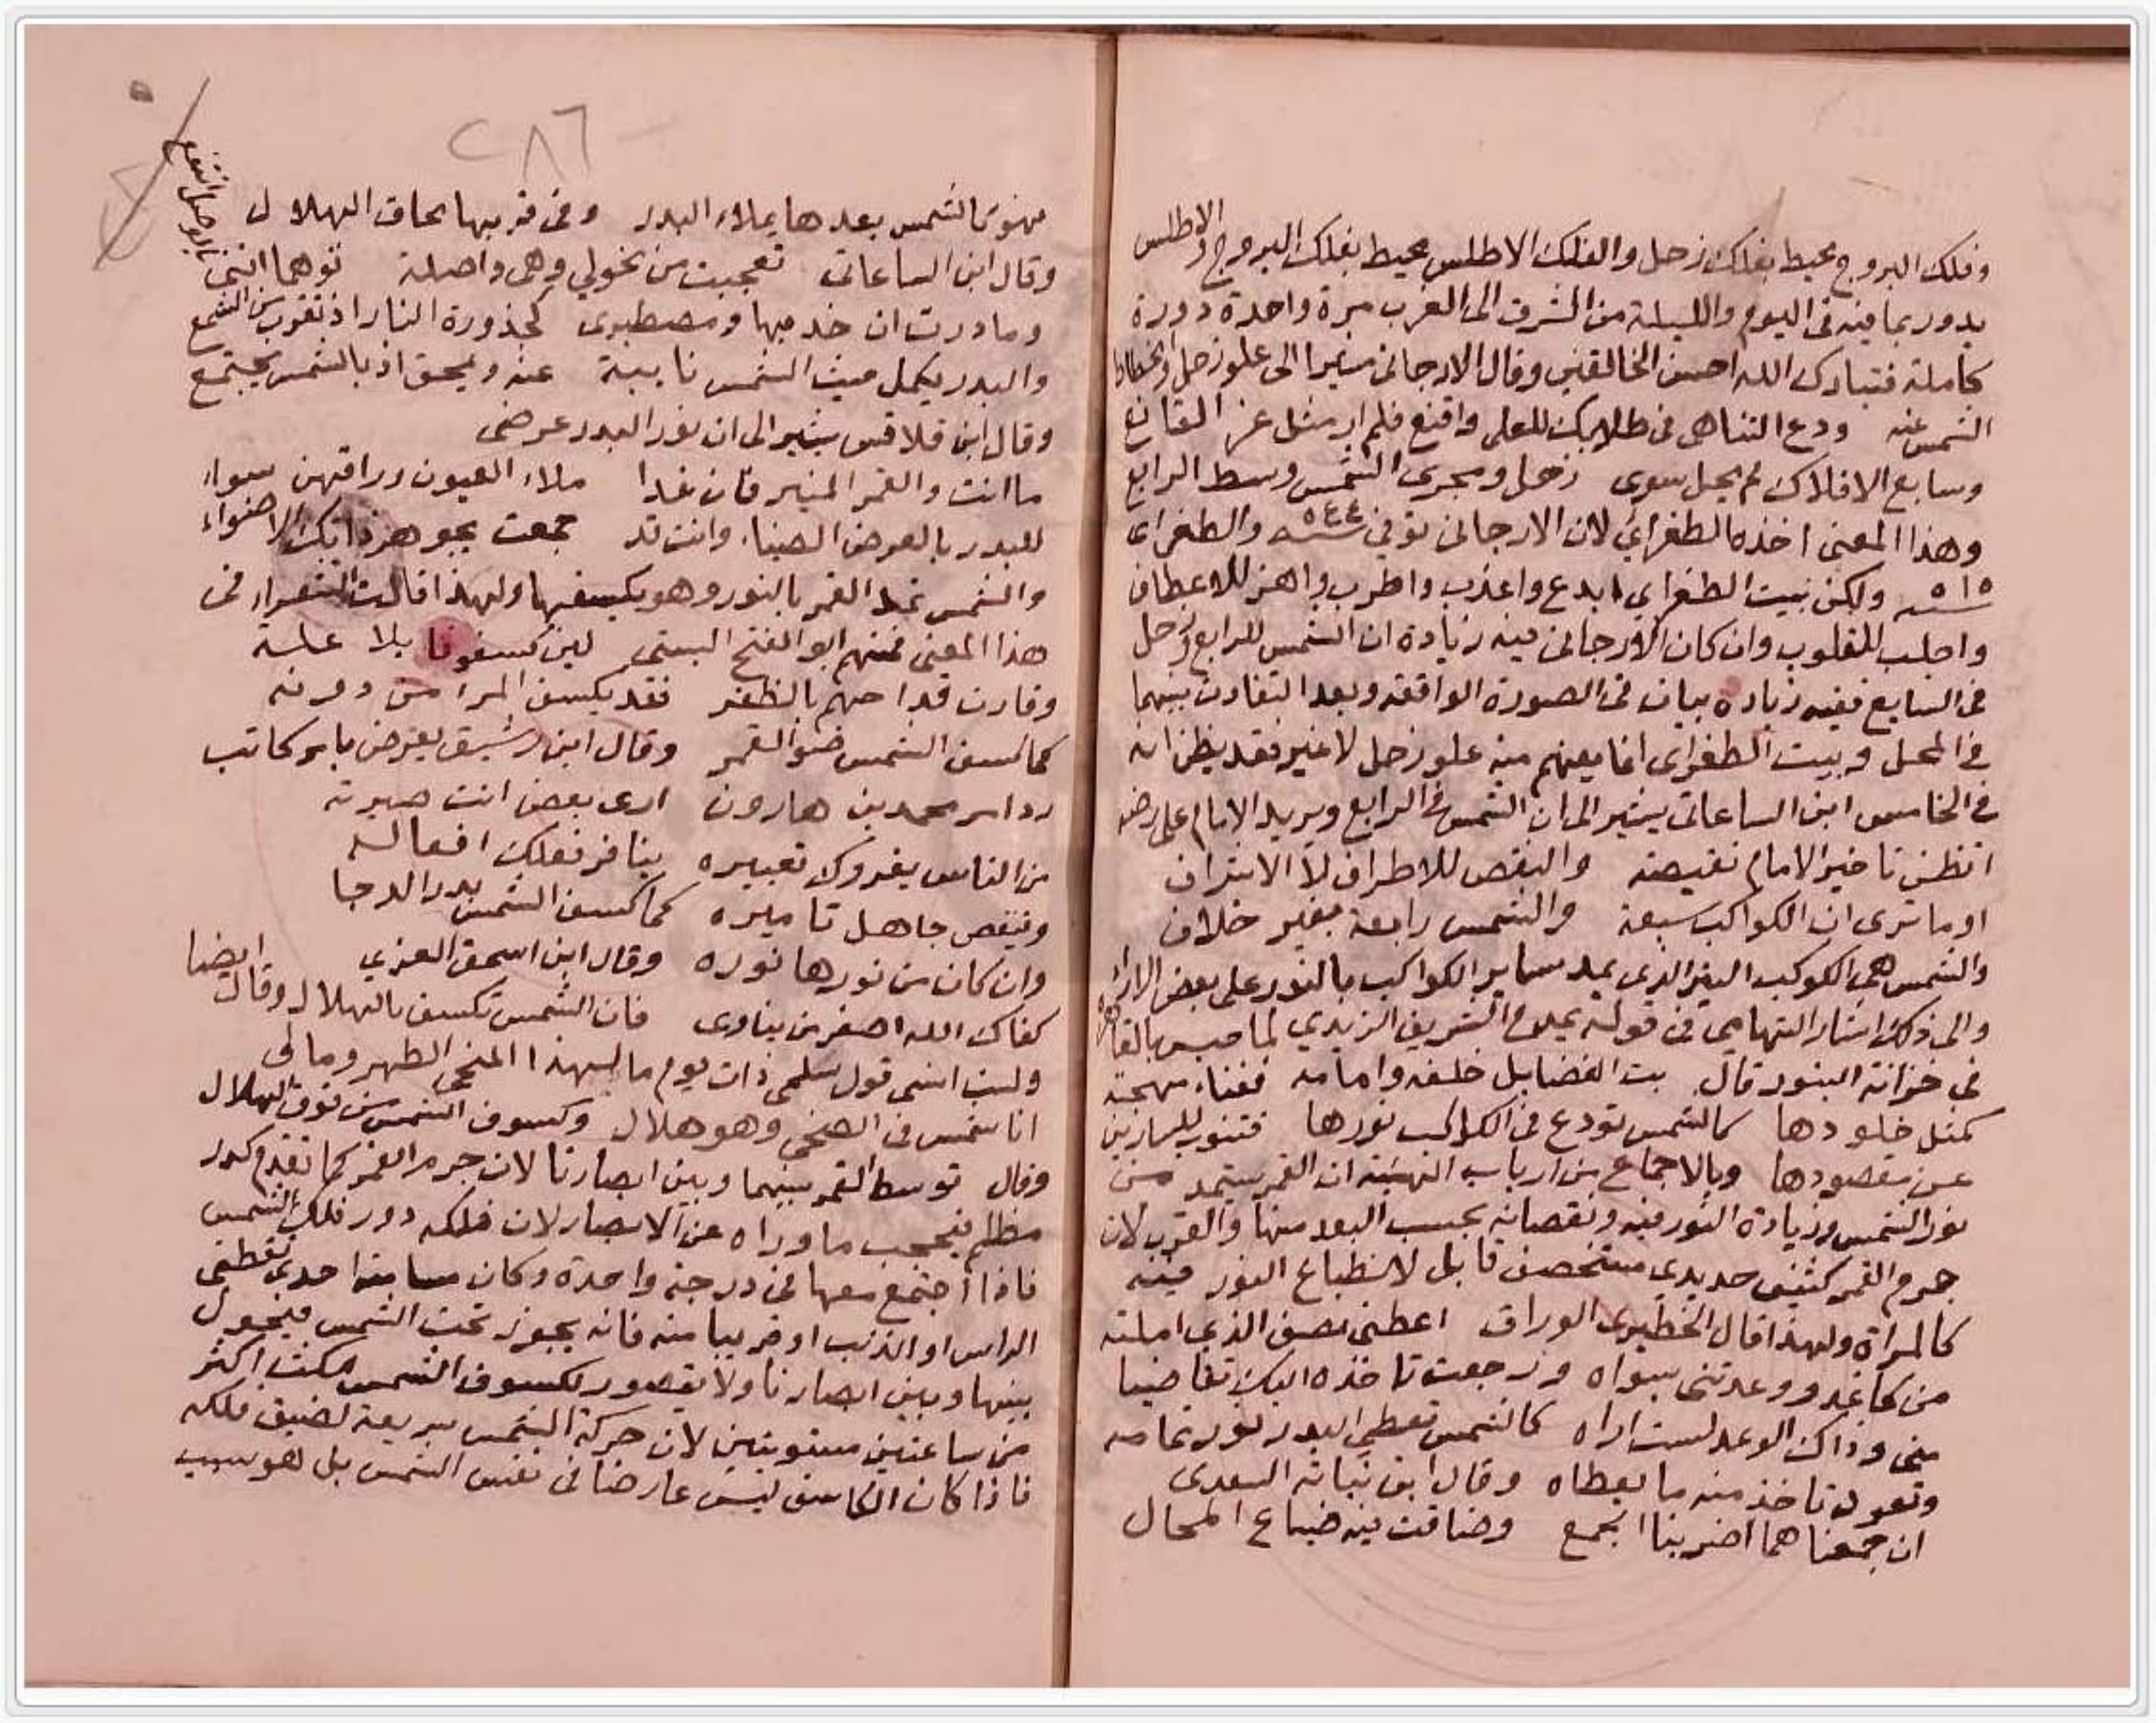 وفلك البروج محيط بفلك زحل والفلك الاطلس محيط بفلك البروج والاطلس
يدور بما فيه فى اليوم والليلة من الشرق الى الغرب مرة واحدة دورة
كاملة فتبارك الله احسن الخالقين وقال الارجانى مشيرا الى علو زحل وانحطاط
الشمس عنه ودع التناهى فى طلابك للعلى واقنع فلم ار مثل عز القانع
وسابع الافلاك لم يحل سوى زحل ومجرى الشمس وسط الرابع
وهذا المعنى اخذه الطغراي لان الارجانى توفي سنة ٥٤٤ والطغراى
سنة ٥١٥ ولكن بيت الطغراي ابدع واعذب واطرب واهز للاعطاف
واجلب للقلوب وان كان الارجانى فيه زيادة ان الشمس للرابع وزحل
فى السابع ففيه زيادة بيان فى الصورة الواقعة وبعد التفاوت بينهما
في المحل وبيت الطغراى انما يفهم منه علو زحل لا غير فقد يظن انه
في الخامس ابن الساعاتى يشير الى ان الشمس في الرابع ويريد الامام على رضه
اتظن تاخير الامام نقيصة والنقص للاطراف لا الاشراف
او ما ترى ان الكواكب سبعة والشمس رابعة بغير خلاف
والشمس هى الكوكب النير الذى يمد ساير الكواكب بالنور على بعض الاراء
والى ذلك اشار التهامى فى قوله يمدح الشريف الزيدي لما حبس بالقاهره
في خزانة البنود قال بث الفضايل خلفه وامامه ففناء مهجته
كمثل خلودها كالشمس تودع فى الكواكب نورها فتنور للسارين
عن مقصودها وبالاجماع من ارباب الهيئة ان القمر يستمد من
نور الشمس وزيادة النور فيه ونقصانه بحسب البعد منها والقرب لان
جرم القمر كثيف حديدي مستحصف قابل لانطباع النور فيه
كالمراة ولهذا قال الخطيرى الوراق اعطنى نصف الذي املته
من كاغد ووعدتنى بسواه ورجعت تاخذه اليك تقاضيا
منى وذاك الوعد لست اراه كالشمس تعطي البدر نور تمامه
وتعود تاخذ منه ما يعطاه وقال ابن نباته السعدى
ان جمعنا هما اضر بنا الجمع وضاقت فيه ضياع المحال
٢٨٦
فهوى كالشمس بعدها يملاء البدر وفى قربها محاق الهلال
وقال ابن الساعاتى تعجبت من نحولي وهى واصلة توهما اننى بالوصل انتفع
وما درت ان خديها ومصطبرى كجذورة النار اذ تقوب من الشمع
والبدر يكمل حيث الشمس نايية عنه ويمحق اذ بالشمس يجتمع
وقال ابن قلاقس يشير الى ان نور البدر عرضى
ما انت والقمر المنير فان غدا ملاء العيون وراقهن سواء
للبدر بالعرض الضياء وانت قد جمعت بجوهر ذاتك الاضواء
والشمس تمد القمر بالنور وهو يكسفها ولهذا قالت الشعراء فى
هذا المعنى فمنهم ابو الفتح البستى لين كسفونا بلا علة
وفازت قداحهم بالظفر فقد يكسف المرا من دونه
كما كسف الشمس ضو القمر وقال ابن رشيق يعرض بابر كاتب
رد اسر محمد بن هارون ارى بعض انت صيرته
من الناس يغروك تعبيره ينافر فعلك افعاله
وينقص جاهل تاميره كما كسف الشمس بدر الدجا
وان كان من نورها نوره وقال ابن اسحق الغزي ايضا
كفاك الله اصغر من يناوى فان الشمس تكسف بالهلال وقال
ولست انسى قول سلمى ذات يوم ما لهذا المنحى الظهر ومالى
انا شمس فى الضحى وهو هلال وكسوف الشمس من فوق الهلال
وقال توسط القمر بينهما وبين ابصارنا لان جرم القمر كما تقدم كدر
مظلم فيحجب ما وراه عن الابصار لان فلكه دور فلك الشمس
فاذا اجتمع معها في درجة واحدة وكان مسامتا احدى نقطتى
الراس او الذنب او قريبا منه فانه يجوز تحت الشمس فيحول
بينها وبين ابصارنا ولا يتصور لكسوف الشمس مكث اكثر
من ساعتين مستويتين لان حركة الشمس سريعة لضيق فلكه
فاذا كان الكاسف ليس عارضا فى نفس الشمس بل هو بسبب